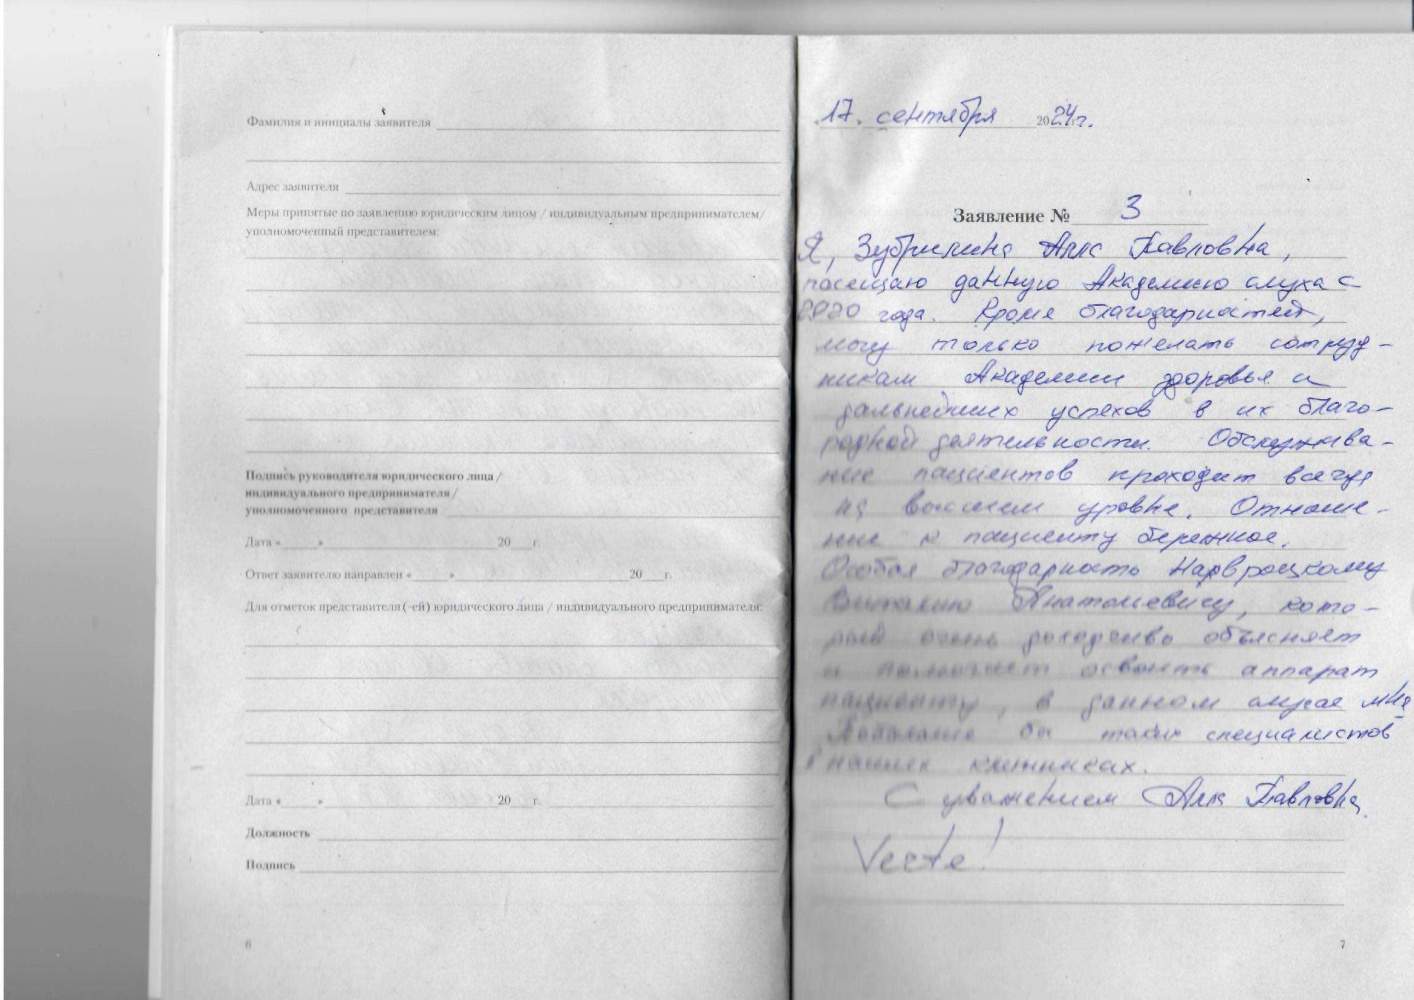 Фамилия и инициалы заявителя
Адрес заявителя
Меры принятые по заявлению юридическим лицом / индивидуальным предпринимателем/
уполномоченный представителем:
Подпись руководителя юридического лица /
индивидуального предпринимателя /
уполномоченного представителя
Дата « » 20 г.
Ответ заявителю направлен « » 20 г.
Для отметок представителя (-ей) юридического лица / индивидуального предпринимателя:
Дата « » 20 г.
Должность
Подпись
6
17. сентября 2024г.
Заявление № 3
Я, Зубрилина Алла Павловна,
посещаю данную Академию слуха с
2020 года. Кроме благодарностей,
могу только пожелать сотруд-
никам Академии здоровья и
дальнейших успехов в их благо-
родной деятельности. Обслужива-
ние пациентов проходит всегда
на высшем уровне. Отноше-
ние к пациенту бережное.
Особая благодарность
Виталию Анатольевичу, кото-
рый очень доходчиво объясняет
и помогает освоить аппарат
пациенту, в данном случае мне
Побольше бы таких специалистов
в наших клиниках.
С уважением Алла Павловна.
7